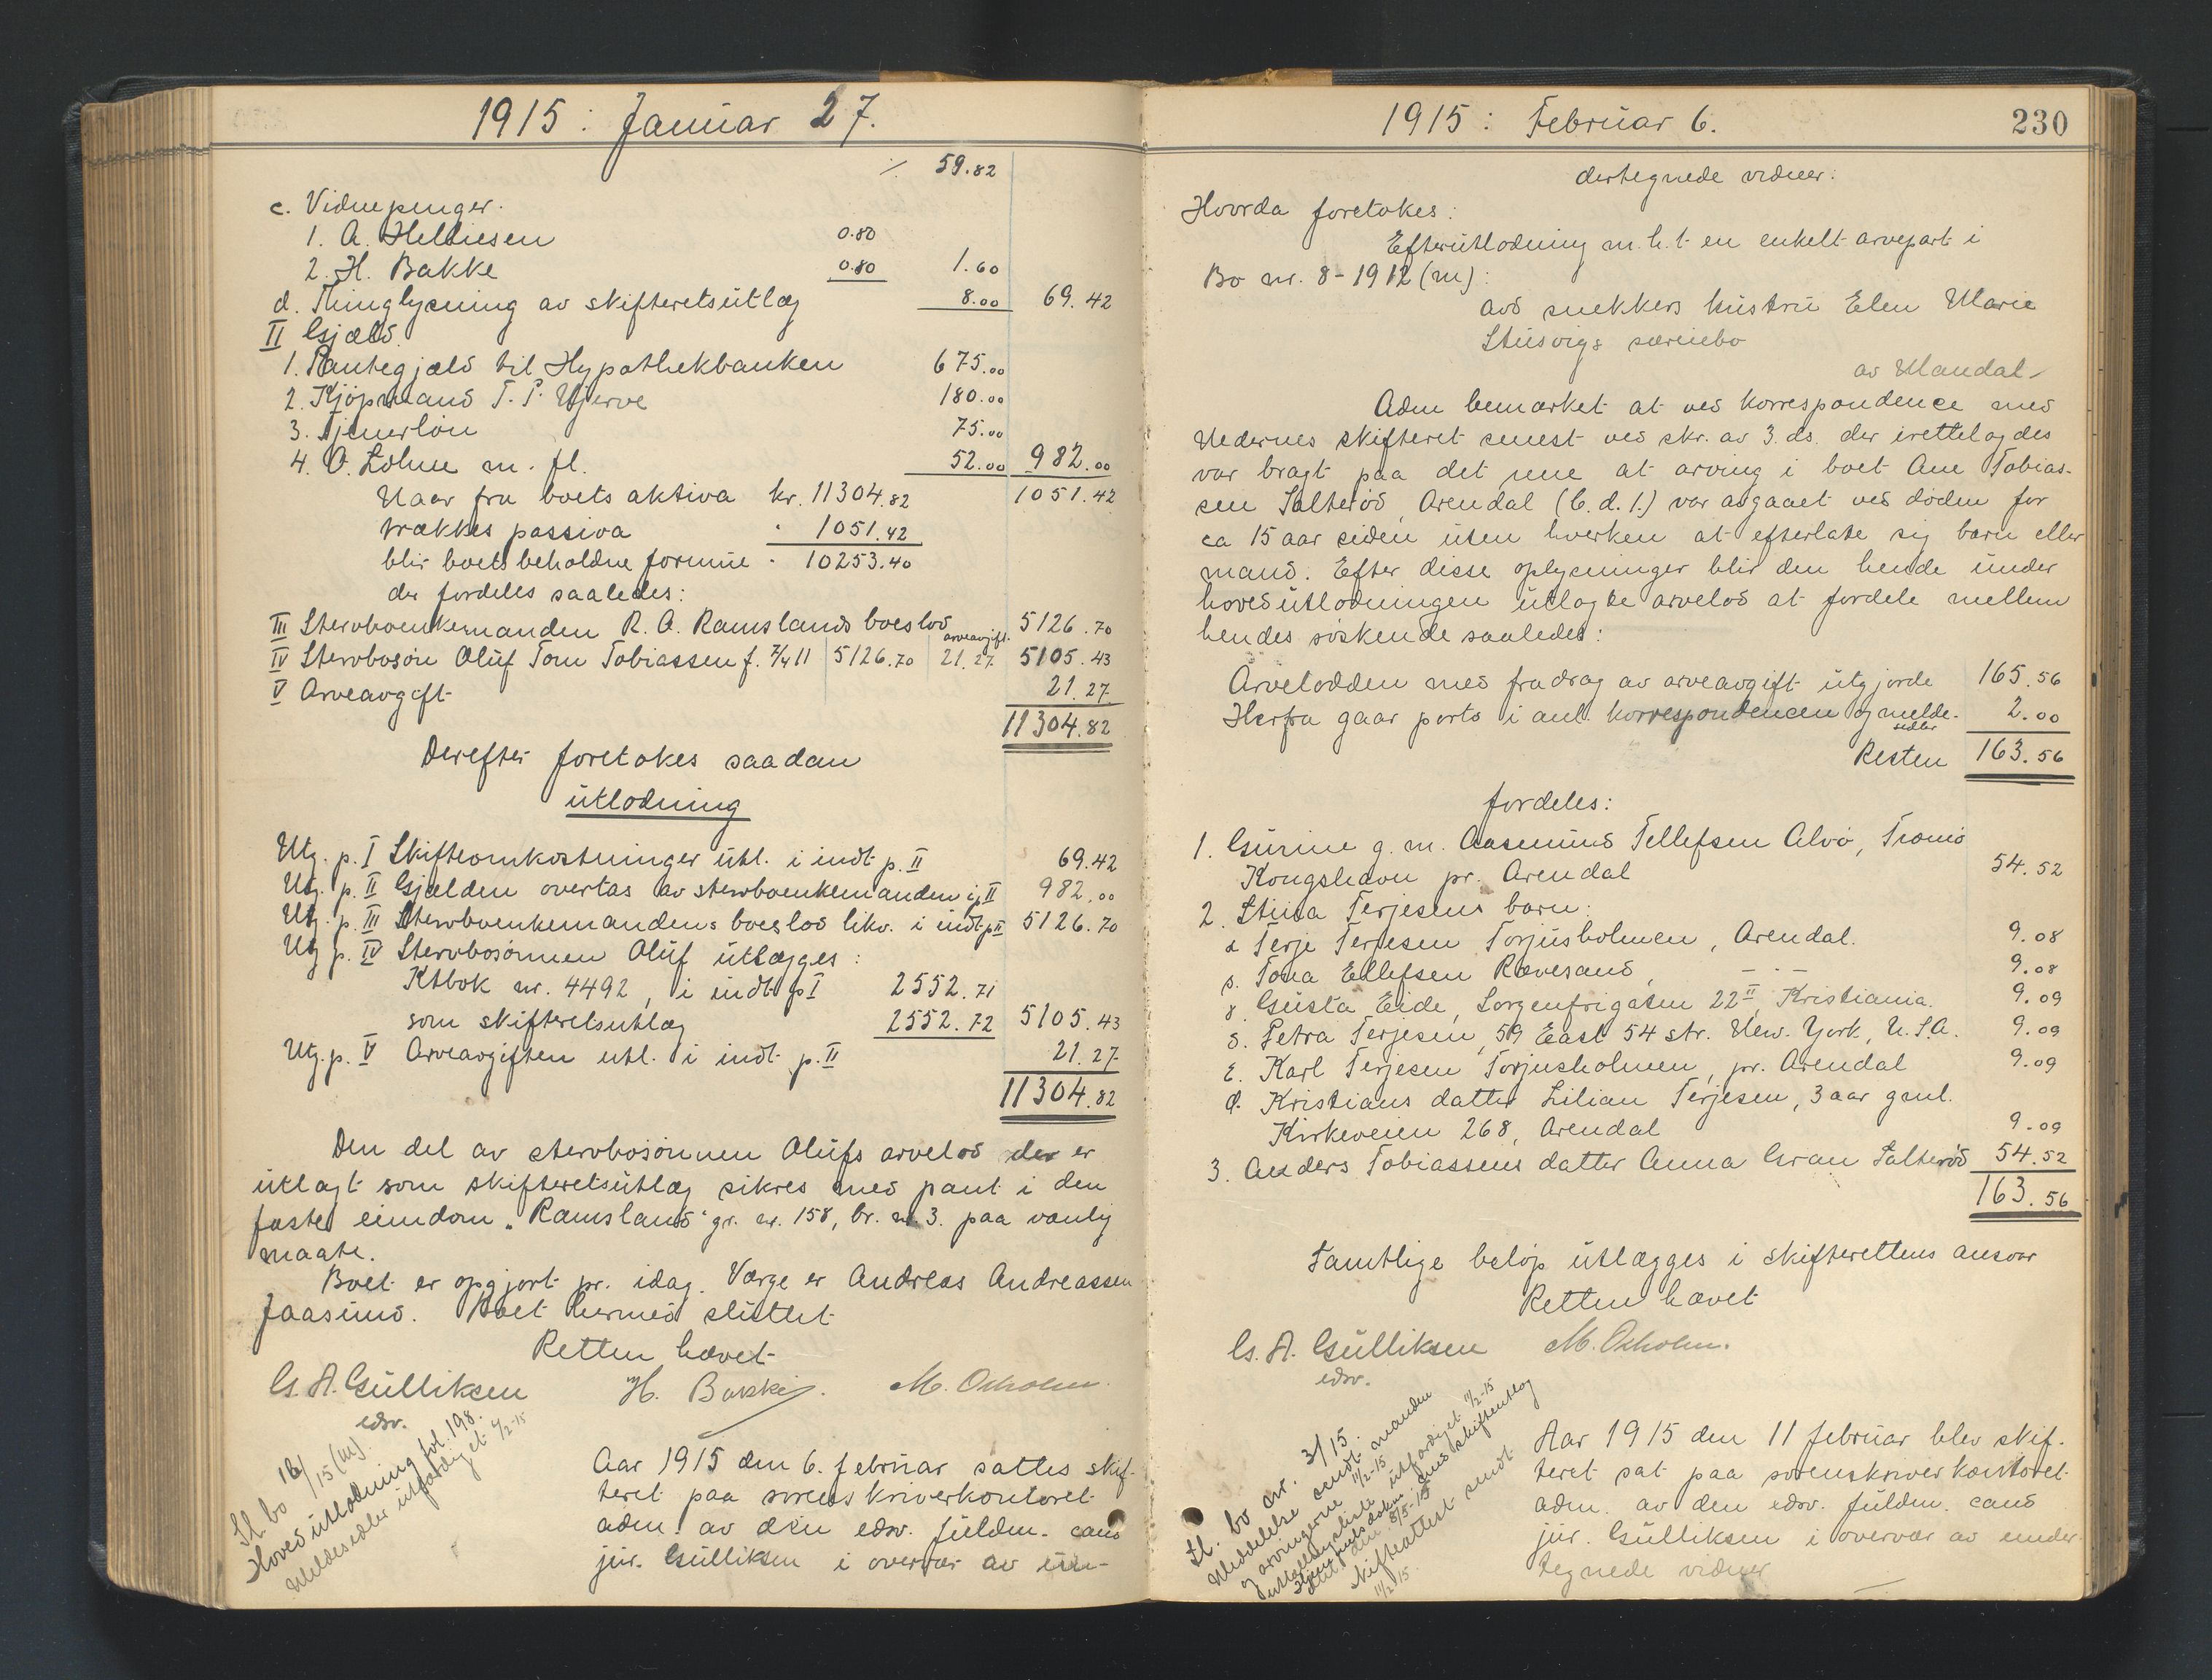 1915: Januar 27.
⁒ 59.82
c. Vidnepenger.
1. A. Heldiesen 0.80
2. H. Bakke 0.80 1.60
d. Thinglysning av skifteretsutlæg 8.00 69.42
II Gjæld.
1. Pantegjæld til Hypothekbanken 675.00
2. Kjøpmand T. T. Ujerve 180.00
3. Tjenerløn 75.00
4. O. Lohne m. fl. 52.00 982.00
Naar fra boets aktiva kr. 11304.82 1051.42
trækkes passiva " 1051.42
blir boets beholdne formue " 10253.40
der fordeles saaledes:
III Stervboenkemanden R. A. Ramslands boeslod 5126.70
IV Stervbosøn Oluf Tom Tobiassen f. 7/4 11 5126.70 arveavgift. 21.27 5105.43
V Arveavgift 21.27
11304.82
Derefter foretokes saadan
utlodning
Utg. p. I Skifteomkostninger utl. i indt. p. II 69.42
Utg. p. II Gjælden overtas av stervboenkemanden i p II 982.00
Utg. p. III Stervboenkemandens boeslod likv. i indt p II 5126.70
Utg p. IV Stervbosønnen Oluf utlægges:
Ktbok nr. 4492, i indt p I 2552.71
som skifteretsutlæg 2552.72 5105.43
Utg. p. V Arveavgiften utl. i indt. p. II 21.27
11304.82
Den del av stervbosønnen Olufs arvelod der er
utlagt som skifteretsutlæg sikres med pant i den
faste eiendom „Ramsland" gr. nr. 158, br. nr 3. paa vanlig
maate.
Boet er opgjort pr. idag. Værge er Andreas Andreassen
Jaasund. Boet hermed sluttet
Retten hævet
G. A. Gulliksen H. Bakke. M. Oxholm.
edsv.
Sl. bo 16/15 (m).
Hovedutlodning fol. 198.
Meldesedler utfærdiget 4/2-15
Aar 1915 den 6. februar sattes skif-
teret paa sorenskriverkontoret
adm. av den edsv. fuldm. cand
jur. Gulliksen i overvær av un-
1915: Februar 6. 230
dertegnede vidner:
Hvorda foretokes:
Efterutlodning m. h. t. en enkelt arvepart i
Bo nr. 8-1912 (m):
avd snekkers hustru Elen Marie
Stusvigs særeiebo
av Mandal
Adm bemærket at ved korrespondence med
Nedernes skifteret senest ved skr. av 3. ds. der irettelagdes
var bragt paa det rene at arving i boet Ane Tobias-
sen Salterød, Arendal (C. d. 1.) var avgaaet ved døden for
ca 15 aar siden uten hverken at efterlate sig barn eller
mand. Efter disse oplysninger blir den hende under
hovedutlodningen utlagte arvelod at fordele mellem
hendes søskende saaledes:
Arvelodden med fradrag av arveavgift utgjorde 165.56
Herfra gaar porto i anl. korrespondencen og melde-
sedler 2.00
Resten 163.56
fordeles:
1. Gurine g. m. Aasmund Tellefsen Alvø, Tromø
Kongshavn pr. Arendal 54.52
2. Stina Terjesens barn:
α Terje Terjesen Torjusholmen, Arendal. 9.08
β. Tona Ellefsen Rævesand, —"— 9.08
γ. Gusta Eide, Sorgenfrigaten 22 II, Kristiania. 9.09
δ. Petra Terjesen, 59 East 54 str. New. York, U.S.A. 9.09
ε. Karl Terjesen Torjusholmen, pr. Arendal 9.09
φ. Kristians datter Lilian Terjesen, 3 aar gml.
Kirkeveien 268, Arendal 9.09
3. Anders Tobiassens datter Anna Gran Salterød 54.52
163.56
Samtlige beløp utlægges i skifterettens ansvar
Retten hævet
G. A. Gulliksen M. Oxholm.
edsv.
Sl. bo nr. 3/15.
Meddelelse sendt manden
og arvingerne 11/2-15
utfærdiget 11/2-15
Skifteattest sendt
11/2 15.
Aar 1915 den 11 februar blev skif-
teret sat paa sorenskriverkontoret
adm. av den edsv. fuldm. cand
jur. Gulliksen i overvær av under-
tegnede vidner